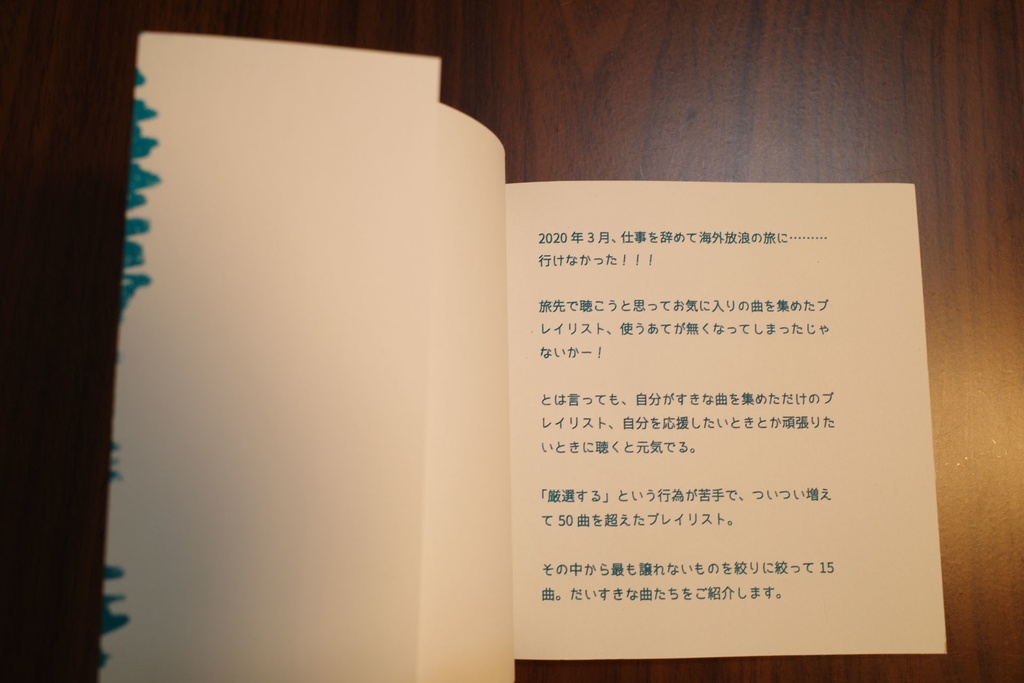 2020 年 3 月、仕事を辞めて海外放浪の旅に………
行けなかった！！！
旅先で聴こうと思ってお気に入りの曲を集めたプ
レイリスト、使うあてが無くなってしまったじゃ
ないかー！
とは言っても、自分がすきな曲を集めただけのプ
レイリスト、自分を応援したいときとか頑張りた
いときに聴くと元気でる。
「厳選する」という行為が苦手で、ついつい増え
て 50 曲を超えたプレイリスト。
その中から最も譲れないものを絞りに絞って 15
曲。だいすきな曲たちをご紹介します。